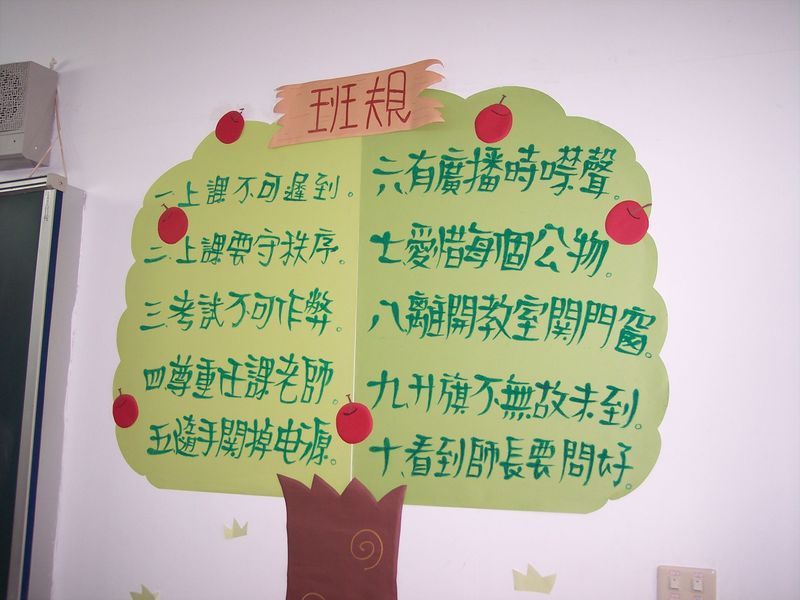 班規
一.上課不可遲到。
二.上課要守秩序。
三.考試不可作弊。
四.尊重任課老師。
五.隨手関掉电源。
六.有廣播時噤聲。
七.愛惜每個公物。
八.離開教室関門窗。
九.升旗不無故未到。
十.看到師長要問好。